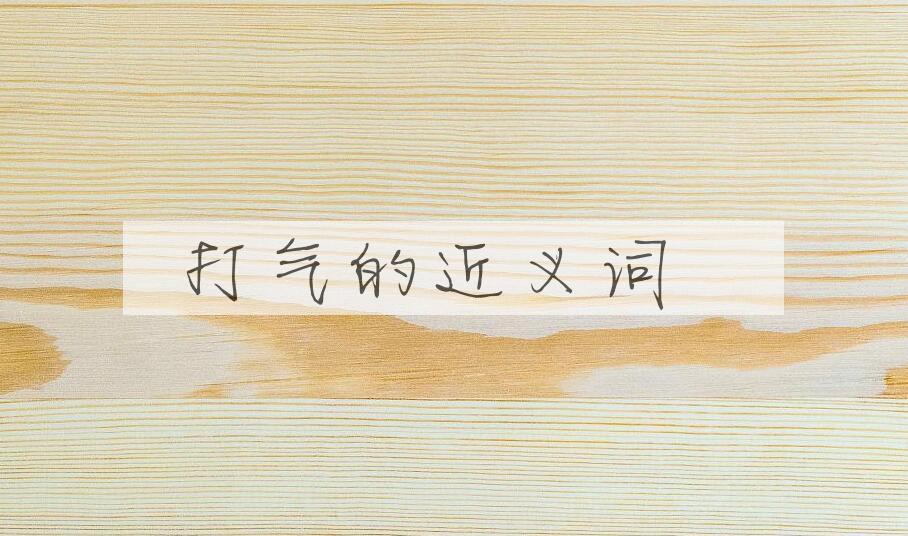 打气的近义词